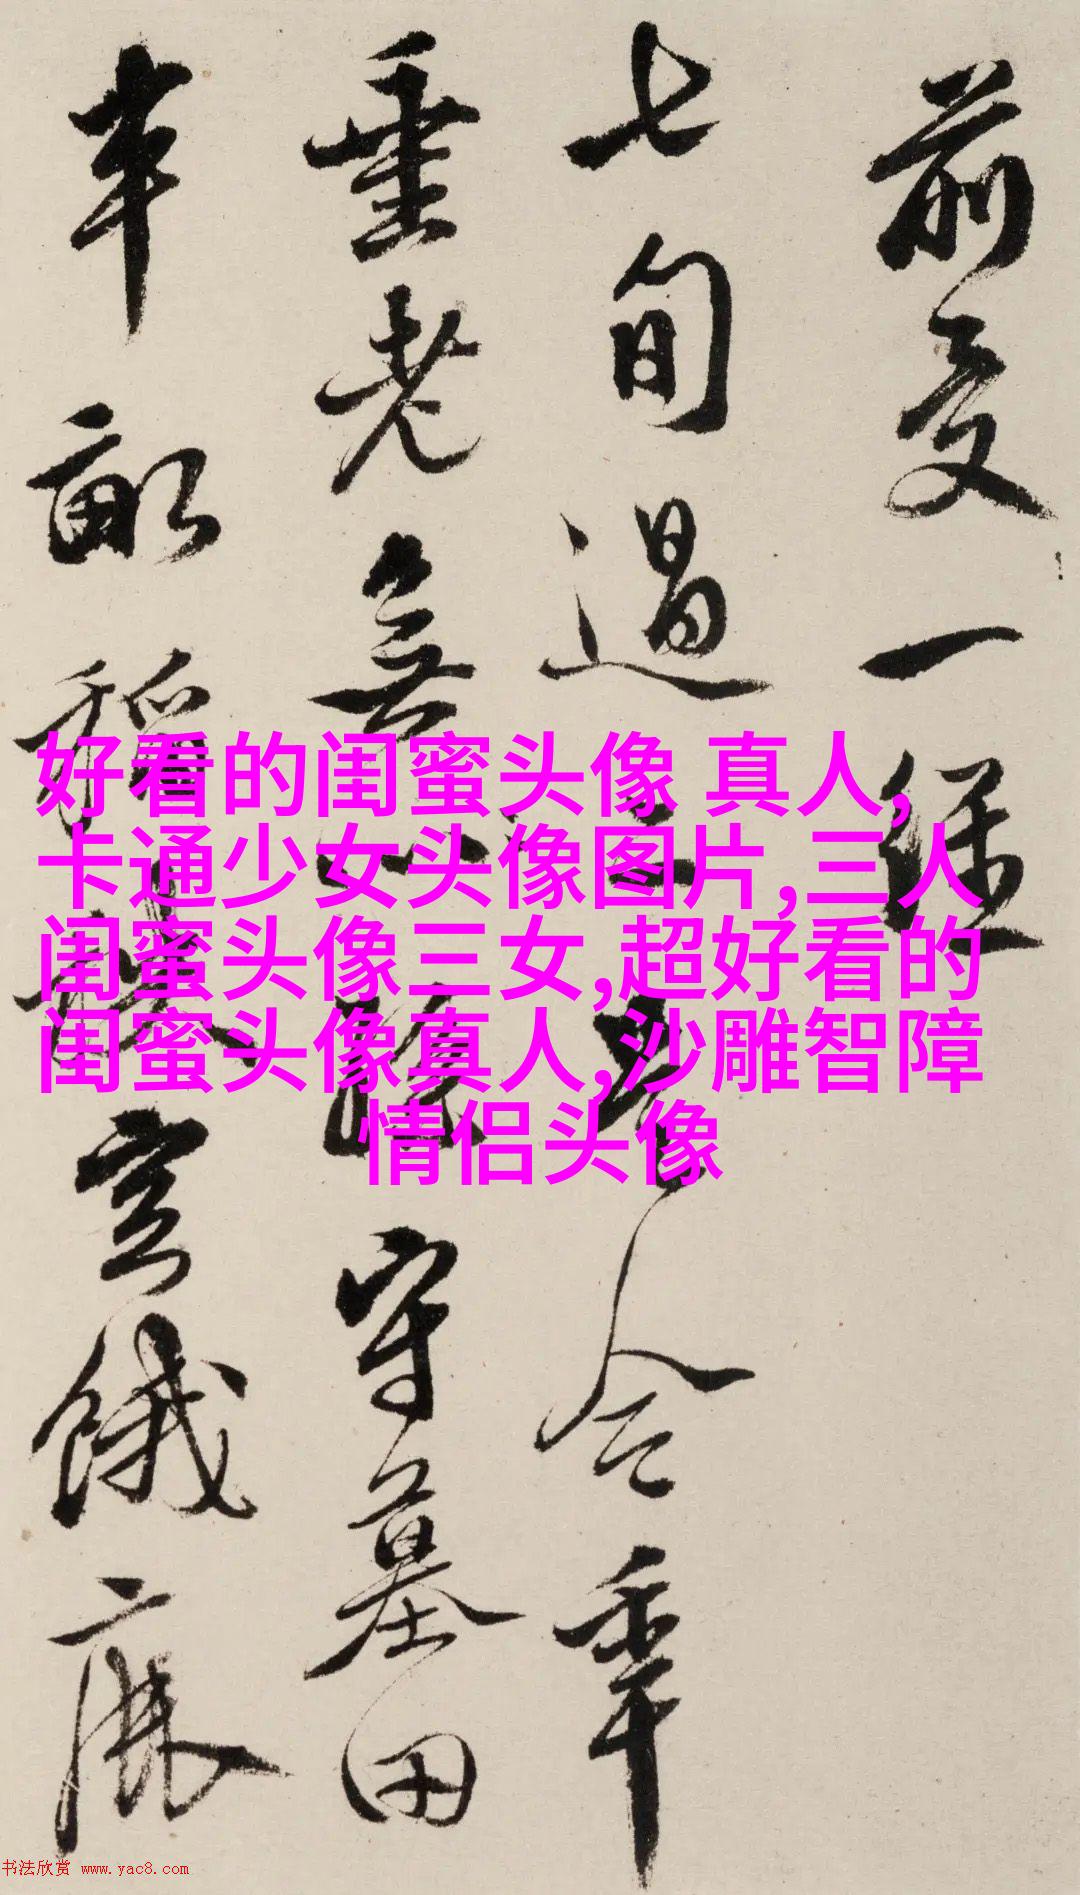 前受一廛
七旬過三吾今年
垂老無以餘守墓田
半畝稻穫空餓
好看的闺蜜头像 真人,
卡通少女头像图片,三人
闺蜜头像三女,超好看的
闺蜜头像真人,沙雕智障
情侣头像
书法欣赏 www.yac8.com